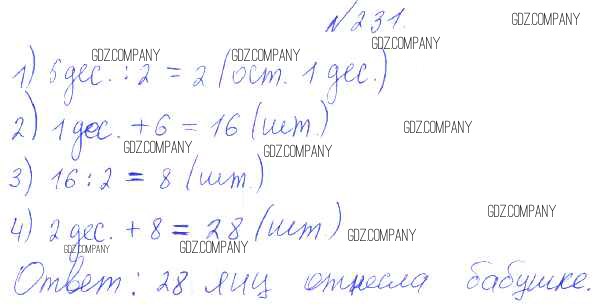 №231.
GDZ.COMPANY
GDZ.COMPANY
GDZ.COMPANY GDZ.COMPANY
1) 5дес. : 2 = 2 (ост. 1 дес.)
2) 1дес. + 6 = 16 (шт.)
GDZ.COMPANY
GDZ.COMPANY GDZ.COMPANY
3) 16 : 2 = 8 (шт.)
GDZ.COMPANY
4) 2дес. + 8 = 28 (шт)
GDZ.COMPANY
GDZ.COMPANY GDZ.COMPANY
Ответ: 28 яиц отнесла бабушке.